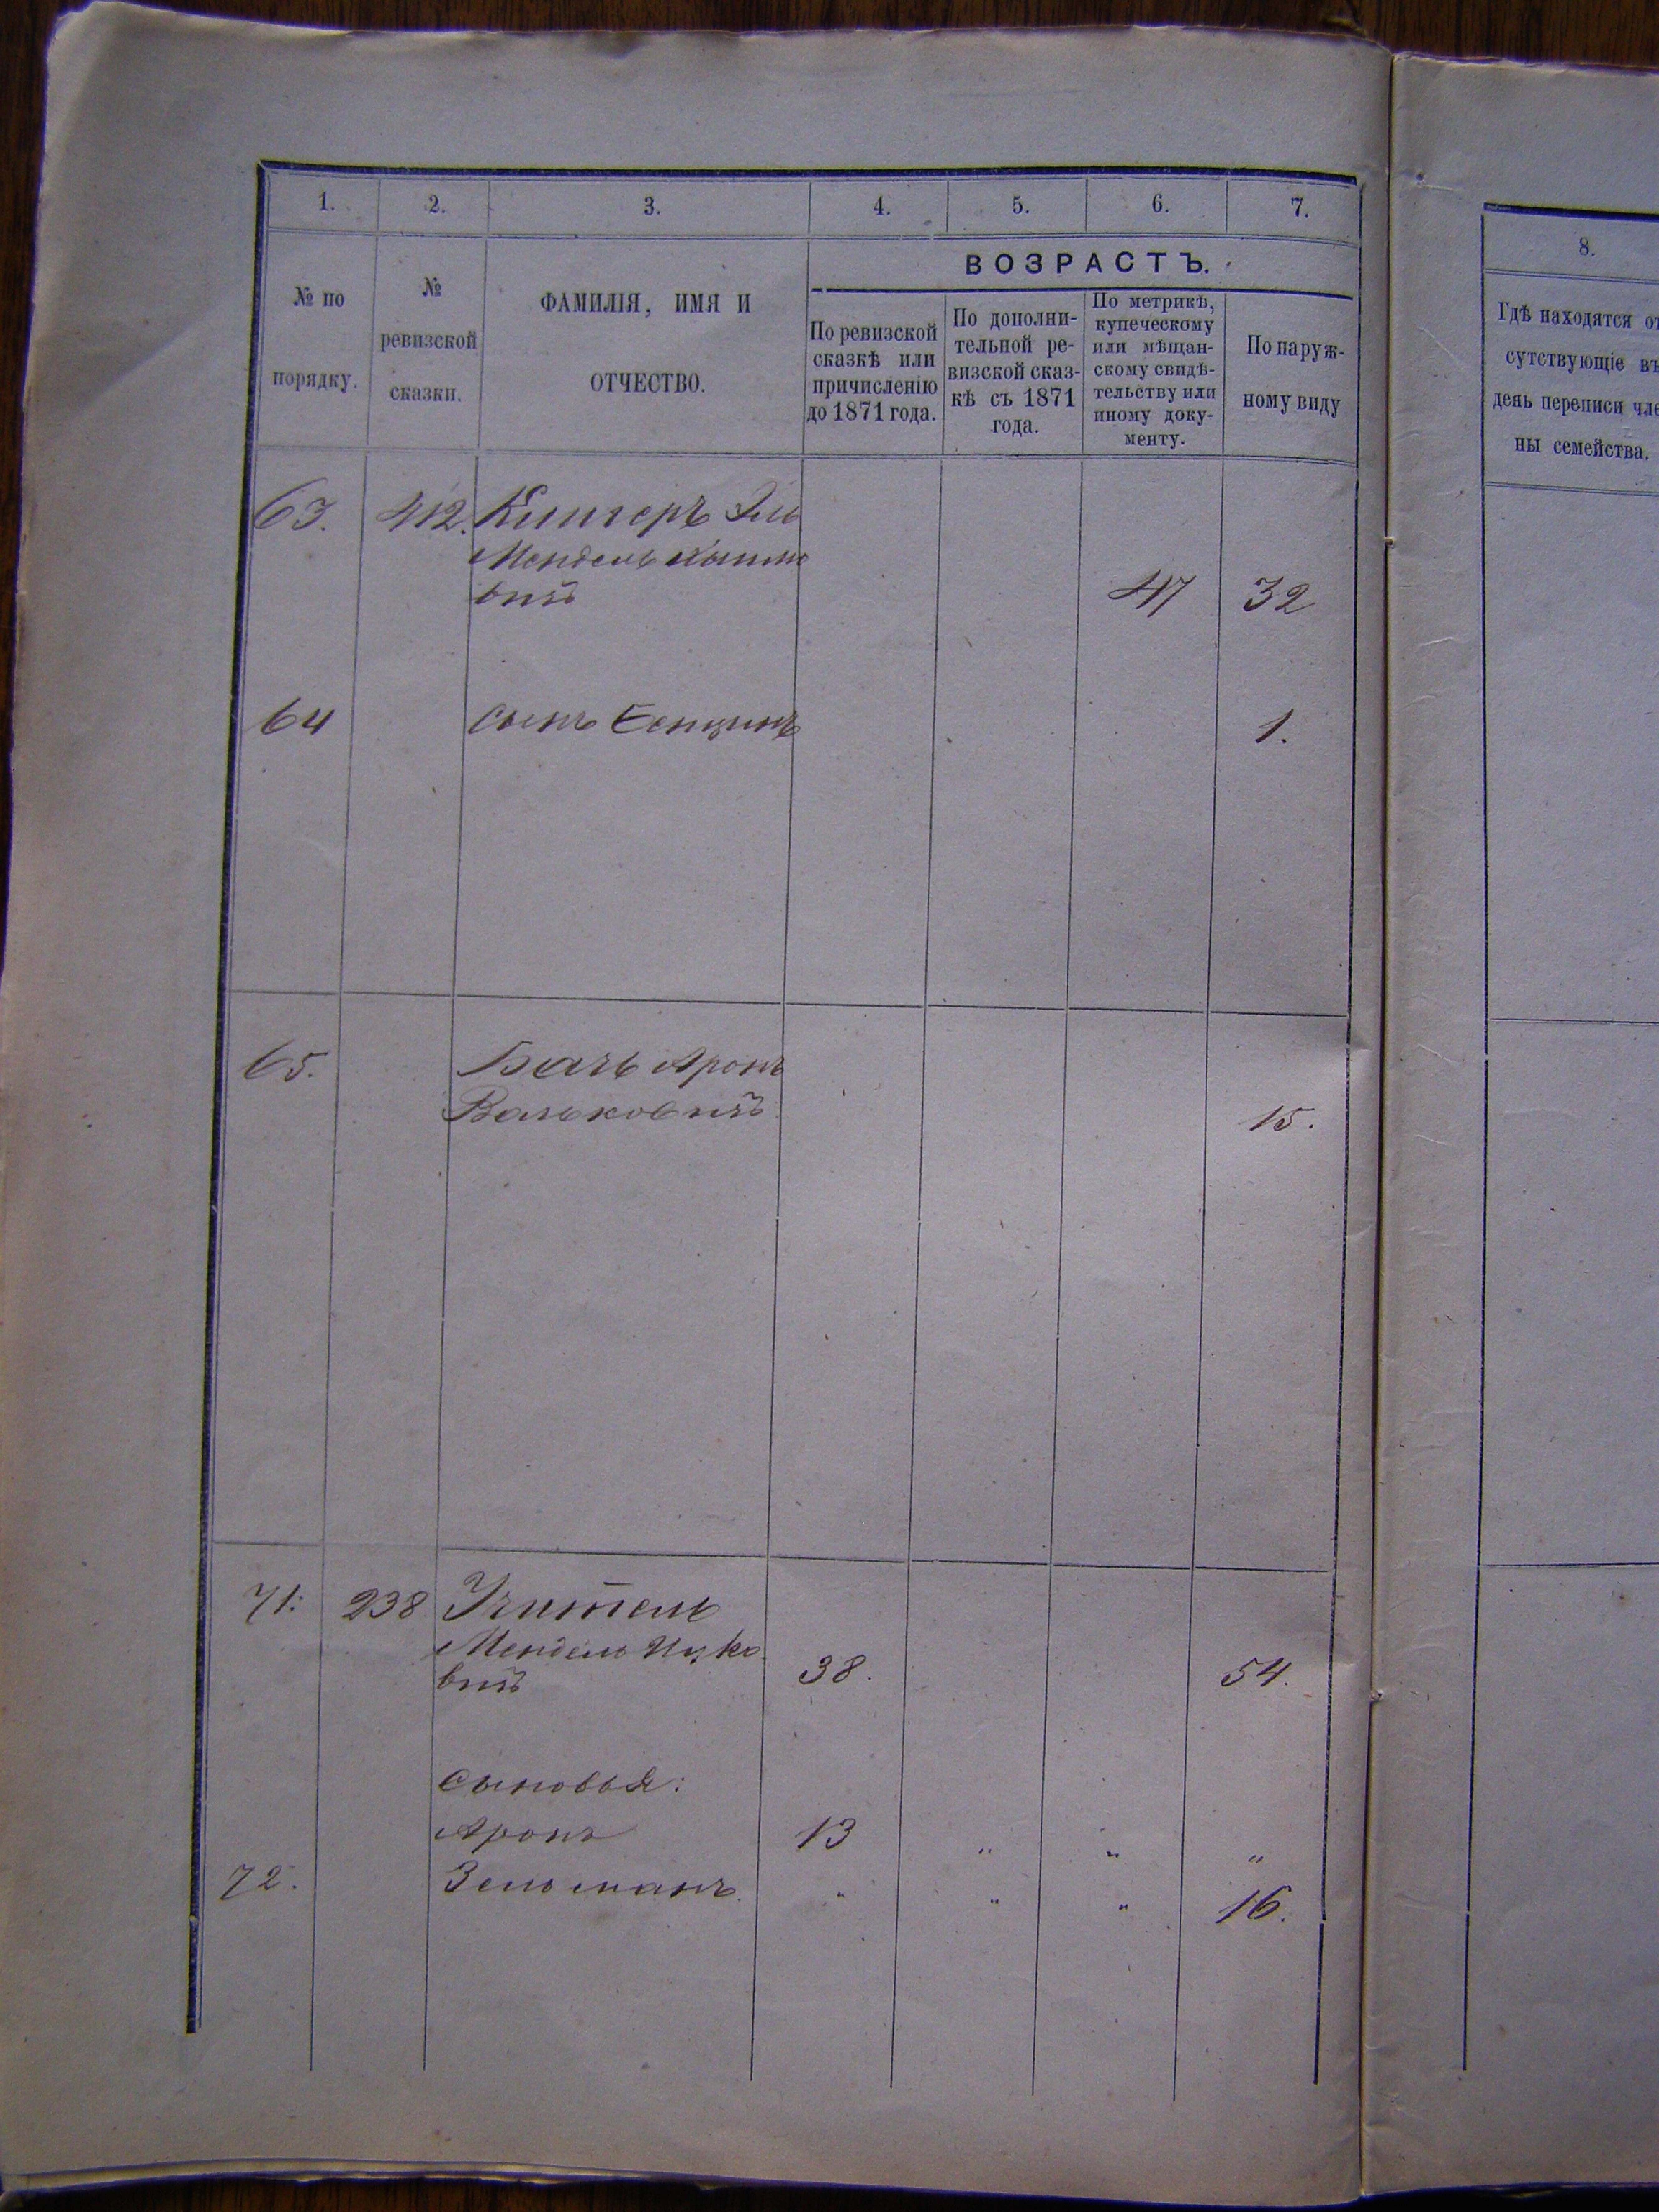 1. 2. 3. 4. 5. 6. 7.
№ по порядку.
№ ревизской сказки.
ФАМИЛІЯ, ИМЯ И ОТЧЕСТВО.
ВОЗРАСТЪ.
По ревизской
сказкѣ или
причисленію
до 1871 года.
По дополни-
тельной ре-
визской сказ-
кѣ съ 1871
года.
По метрикѣ,
купеческому
или мѣщан-
скому свидѣ-
тельству или
иному доку-
менту.
По наруж-
ному виду
63. 412.
Мендель
вичъ 47 32
64 сынъ 1.
65. Аронъ
Вольковичъ 15.
71. 238 Учитель
Мендель Ицко
вичъ 38. 54.
Сыновья:
Аронъ 13 „ „ „
72. Зельманъ „ „ „ 16.
8.
Гдѣ находятся от
сутствующіе въ
день переписи чле
ны семейства.